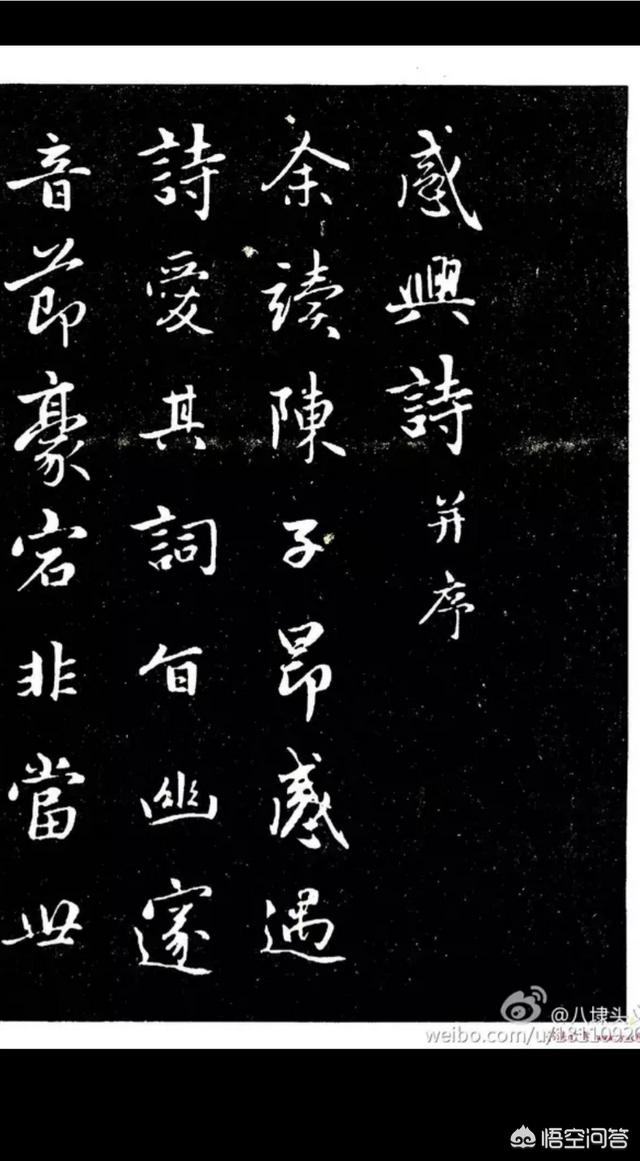 感興詩并序
余讀陳子昂感遇
詩愛其詞旨幽邃
音節豪宕非當世
@八埭头
weibo.com/u/
悟空问答